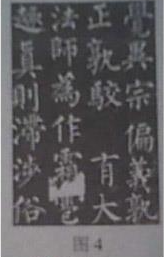 覺異宗偏義孰
正孰駮 有大
法師為作霜雹
趣真則滯涉俗
图4